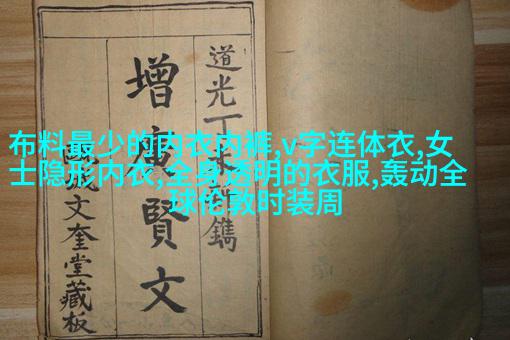 布料最少的内衣内裤,v字连体衣,女
士隐形内衣,全身透明的衣服,轰动全
球伦敦时装周
道光丁鐫
增廣賢文
文奎堂藏板